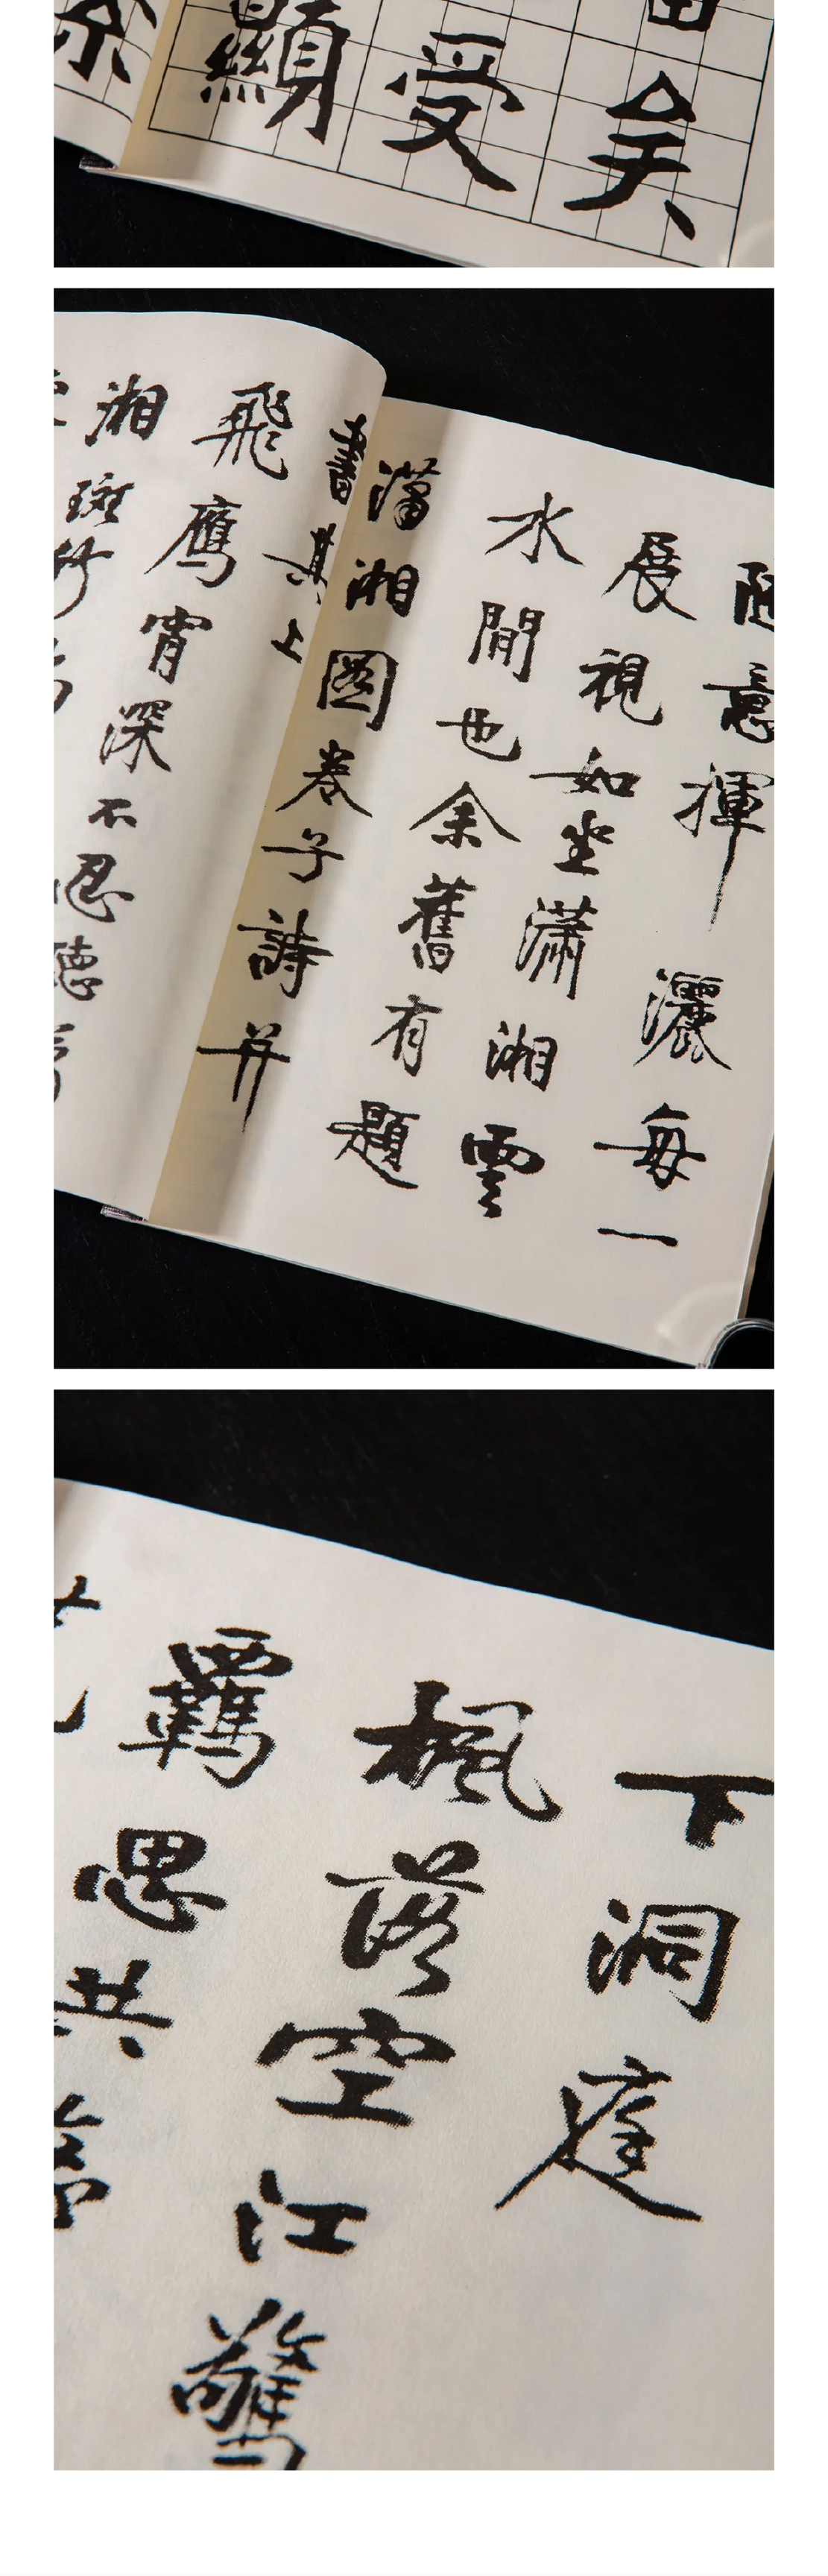 矣
受
顯
隨意揮
灑每一
展視如坐瀟湘雲
水間也余舊有題
瀟湘圖卷子詩并
書其上
飛鷹宵深不忍聽
湘斑竹
下洞庭
楓落空江驚
羈思共